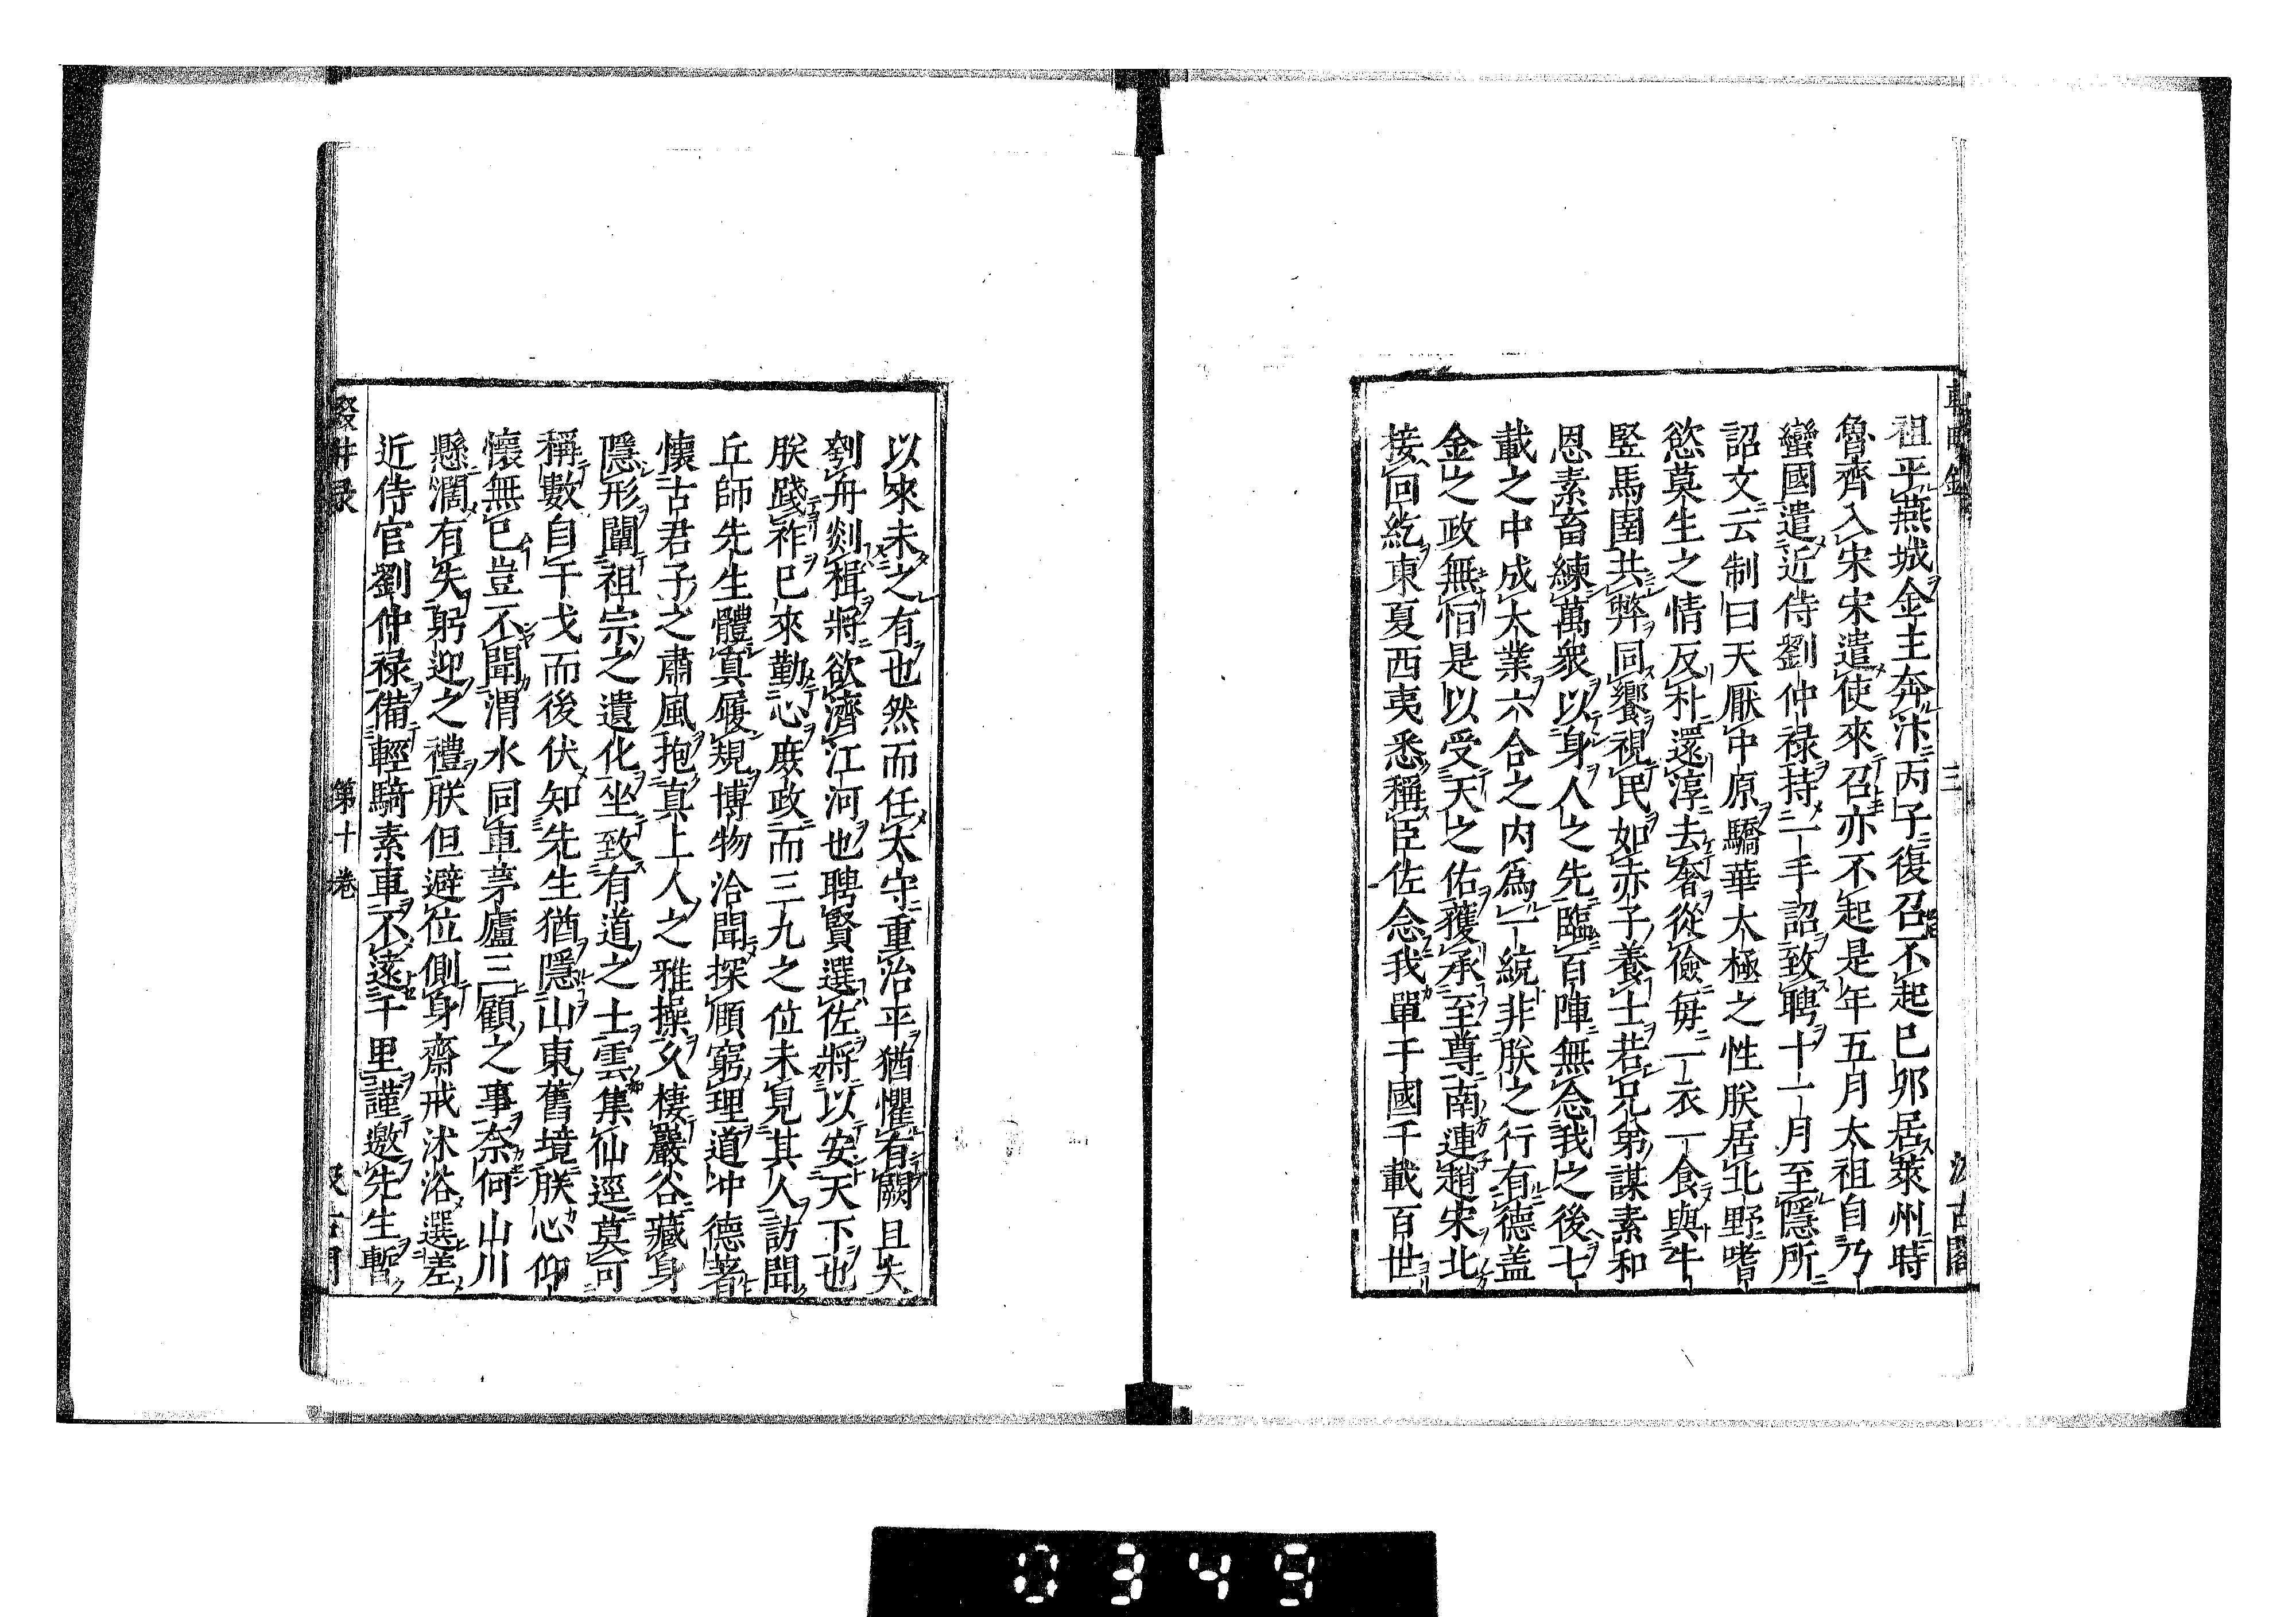 祖平燕城金主奔汴丙子復召不起巳卯居萊州時
魯齊入宋宋遣使來召亦不起是年五月太祖自乃
蠻國遣近侍劉仲祿持手詔致聘十一月至隱所
詔文云制曰天厭中原驕華太極之性朕居北野嗜
慾莫生之情反朴還淳去奢從儉每一衣一食與牛
竪馬圉共弊同饗視民如赤子養士若兄弟謀素和
恩素畜練萬衆以身人之先臨百陣無念我之後七
載之中成大業六合之內爲一統非朕之行有德盖
金之政無恒是以受天之佑獲承至尊南連趙宋北
接回紇東夏西夷悉稱臣佐念我單于國千載百世
以來未之有也然而任大守重治平猶懼有闕且夫
刳舟剡楫將欲濟江河也聘賢選佐將以安天下也
朕踐祚巳來勤心庶政而三九之位未見其人訪聞
丘師先生體真履規博物洽聞探頤窮理道冲德著
懷古君子之肅風抱真上人之雅操久棲巖谷藏身
隱形闡祖宗之遺化坐致有道之士雲集仙逕莫可
稱數自干戈而後伏知先生猶隱山東舊境朕心仰
懷無巳豈不聞渭水同車茅廬三顧之事奈何山川
懸濶有失躬迎之禮朕但避位側身齋戒沐浴選差
近侍官劉仲祿備輕騎素車不遠千里謹邀先生暫
輟耕録 第十卷
0349